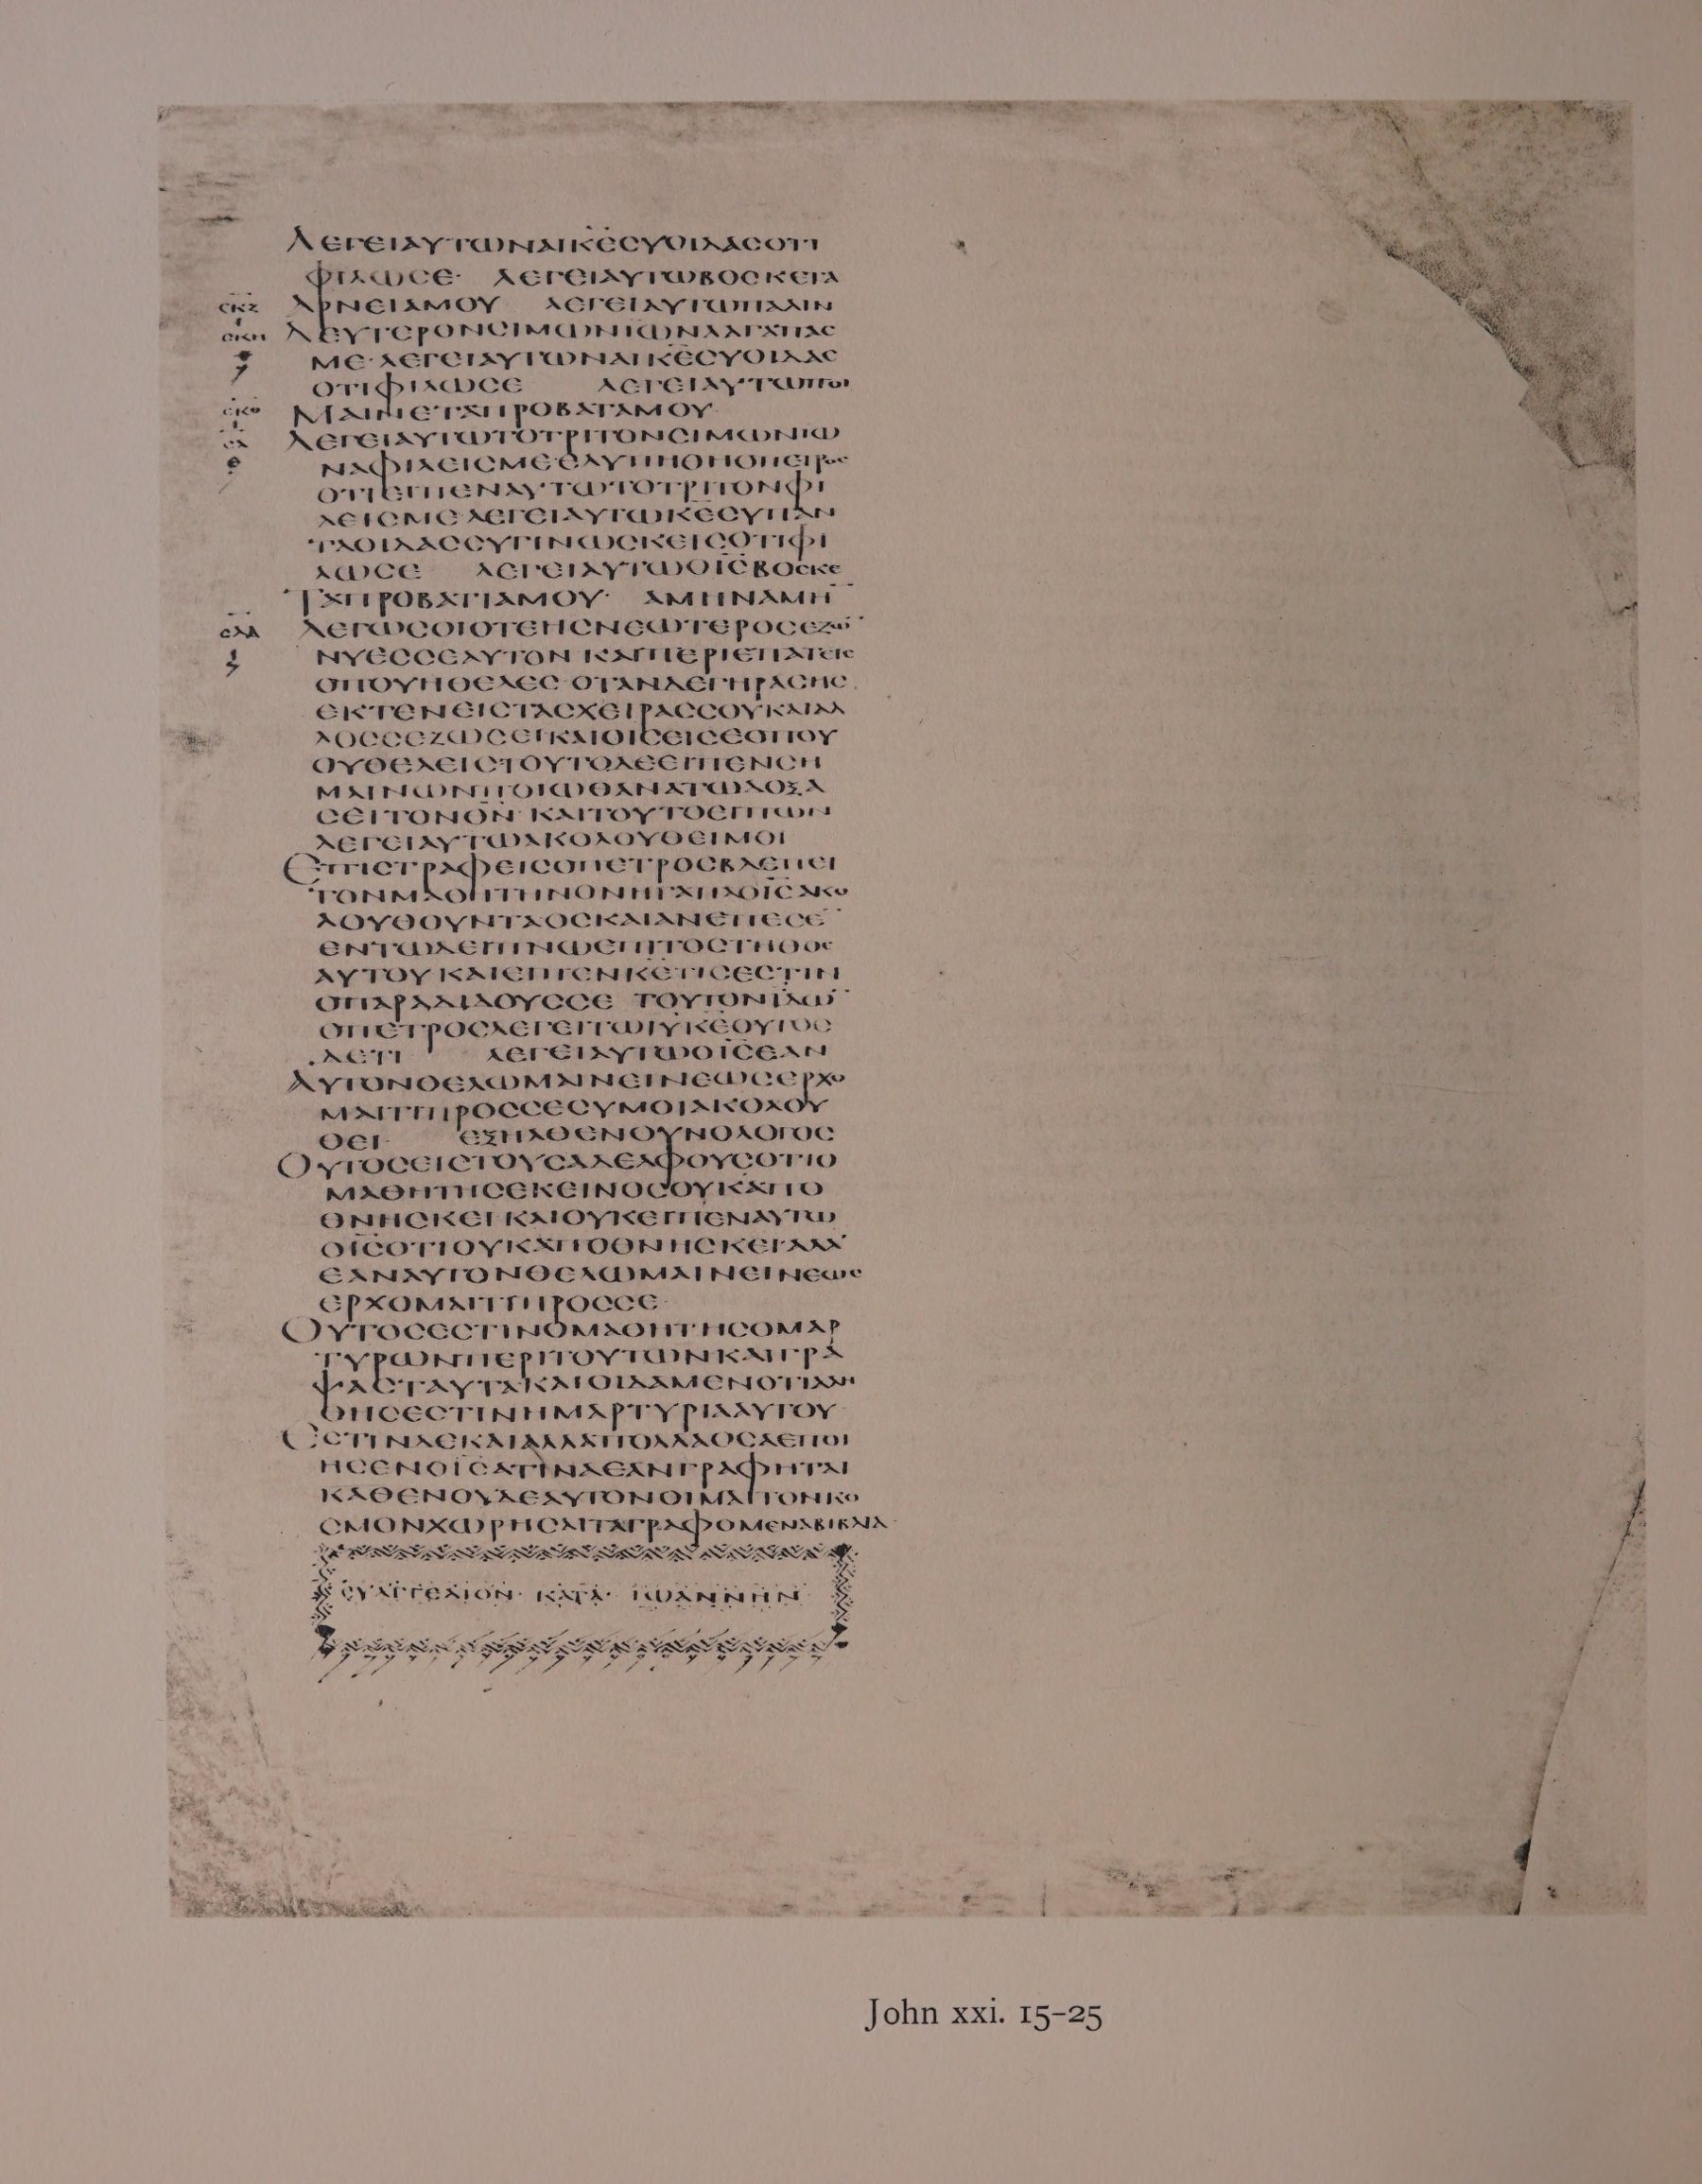 ΛΕΓΕΙΑΥΤΩΝΑΙΚ̅Ε̅ϹΥΟΙΔΑϹΟΤΙ
ΦΙΛΩϹΕ· ΛΕΓΕΙΑΥΤΩΒΟϹΚΕΤΑ
ϹΚΖ ΑΡΝΕΙΑΜΟΥ ΛΕΓΕΙΑΥΤΩΠΑΛΙΝ
ϹΚΗ ΔΕΥΤΕΡΟΝϹΙΜΩΝΙΩΝΑΑΓΑΠΑϹ
ΜΕ·ΛΕΓΕΙΑΥΤΩΝΑΙΚ̅Ε̅ϹΥΟΙΔΑϹ
ΟΤΙΦΙΛΩϹΕ ΛΕΓΕΙΑΥΤΩΠΟΙ
ϹΚΘ ΜΑΙΝΕΤΑΠΡΟΒΑΤΑΜΟΥ
ϹΛ ΛΕΓΕΙΑΥΤΩΤΟΤΡΙΤΟΝϹΙΜΩΝΙΩ
ΝΑΦΙΛΕΙϹΜΕΕΛΥΠΗΘΗΟΠΕΤΡΟϹ
ΟΤΙΕΙΠΕΝΑΥΤΩΤΟΤΡΙΤΟΝΦΙ
ΛΕΙϹΜΕΛΕΓΕΙΑΥΤΩΚ̅Ε̅ϹΥΠΑΝ
ΤΑΟΙΔΑϹϹΥΓΙΝΩϹΚΕΙϹΟΤΙΦΙ
ΛΩϹΕ ΛΕΓΕΙΑΥΤΩΟΙ̅Ϲ̅ΒΟϹΚΕ
ΤΑΠΡΟΒΑΤΙΑΜΟΥ· ΑΜΗΝΑΜΗ̅
ϹΛΑ ΛΕΓΩϹΟΙΟΤΕΗϹΝΕΩΤΕΡΟϹΕΖΩ̅
ΝΥΕϹϹΕΑΥΤΟΝΚΑΙΠΕΡΙΕΠΑΤΕΙϹ
ΟΠΟΥΗΘΕΛΕϹΟΤΑΝΔΕΓΗΡΑϹΗϹ
ΕΚΤΕΝΕΙϹΤΑϹΧΕΙΡΑϹϹΟΥΚΑΙΑΛ
ΛΟϹϹΕΖΩϹΕΙΚΑΙΟΙϹΕΙϹΕΟΠΟΥ
ΟΥΘΕΛΕΙϹΤΟΥΤΟΔΕΕΙΠΕΝϹΗ
ΜΑΙΝΩΝΠΟΙΩΘΑΝΑΤΩΔΟΞΑ
ϹΕΙΤΟΝΘ̅Ν̅ΚΑΙΤΟΥΤΟΕΙΠΩΝ
ΛΕΓΕΙΑΥΤΩΑΚΟΛΟΥΘΕΙΜΟΙ
ΕΠΙϹΤΡΑΦΕΙϹΟΠΕΤΡΟϹΒΛΕΠΕΙ
ΤΟΝΜΑΘΗΤΗΝΟΝΗΓΑΠΑΟΙ̅Ϲ̅ΑΚΟ
ΛΟΥΘΟΥΝΤΑΟϹΚΑΙΑΝΕΠΕϹΕ̅
ΕΝΤΩΔΕΙΠΝΩΕΠΙΤΟϹΤΗΘΟϹ
ΑΥΤΟΥΚΑΙΕΙΠΕΝΚ̅Ε̅ΤΙϹΕϹΤΙΝ
ΟΠΑΡΑΔΙΔΟΥϹϹΕ ΤΟΥΤΟΝΙΔΩ̅
ΟΠΕΤΡΟϹΛΕΓΕΙΤΩΙ̅Υ̅Κ̅Ε̅ΟΥΤΟϹ
ΔΕΤΙ ΛΕΓΕΙΑΥΤΩΟΙ̅Ϲ̅ΕΑΝ
ΑΥΤΟΝΘΕΛΩΜΑΙΝΕΙΝΕΩϹΕΡΧΟ
ΜΑΙΤΙΠΡΟϹϹΕϹΥΜΟΙΑΚΟΛΟΥ
ΘΕΙ· ΕΞΗΛΘΕΝΟΥΝΟΛΟΓΟϹ
ΟΥΤΟϹΕΙϹΤΟΥϹΑΔΕΛΦΟΥϹΟΤΙΟ
ΜΑΘΗΤΗϹΕΚΕΙΝΟϹΟΥΚΑΠΟ
ΘΝΗϹΚΕΙΚΑΙΟΥΚΕΙΠΕΝΑΥΤΩ
ΟΙ̅Ϲ̅ΟΤΙΟΥΚΑΠΟΘΝΗϹΚΕΙΑΛΛ
ΕΑΝΑΥΤΟΝΘΕΛΩΜΑΙΝΕΙΝΕΩϹ
ΕΡΧΟΜΑΙΤΙΠΡΟϹϹΕ·
ΟΥΤΟϹΕϹΤΙΝΟΜΑΘΗΤΗϹΟΜΑΡ
ΤΥΡΩΝΠΕΡΙΤΟΥΤΩΝΚΑΙΓΡΑ
ΨΑϹΤΑΥΤΑΚΑΙΟΙΔΑΜΕΝΟΤΙΑΛΗ
ΘΗϹΕϹΤΙΝΗΜΑΡΤΥΡΙΑΑΥΤΟΥ
ΕϹΤΙΝΔΕΚΑΙΑΛΛΑΠΟΛΛΑΟϹΑΕΠΟΙ
ΗϹΕΝΟΙ̅Ϲ̅ΑΤΙΝΑΕΑΝΓΡΑΦΗΤΑΙ
ΚΑΘΕΝΟΥΔΕΑΥΤΟΝΟΙΜΑΙΤΟΝΚΟ
ϹΜΟΝΧΩΡΗϹΑΙΤΑΓΡΑΦΟΜΕΝΑΒΙΒΛΙΑ·
ΕΥΑΓΓΕΛΙΟΝ· ΚΑΤΑ· ΙΩΑΝΝΗΝ
John xxi. 15–25